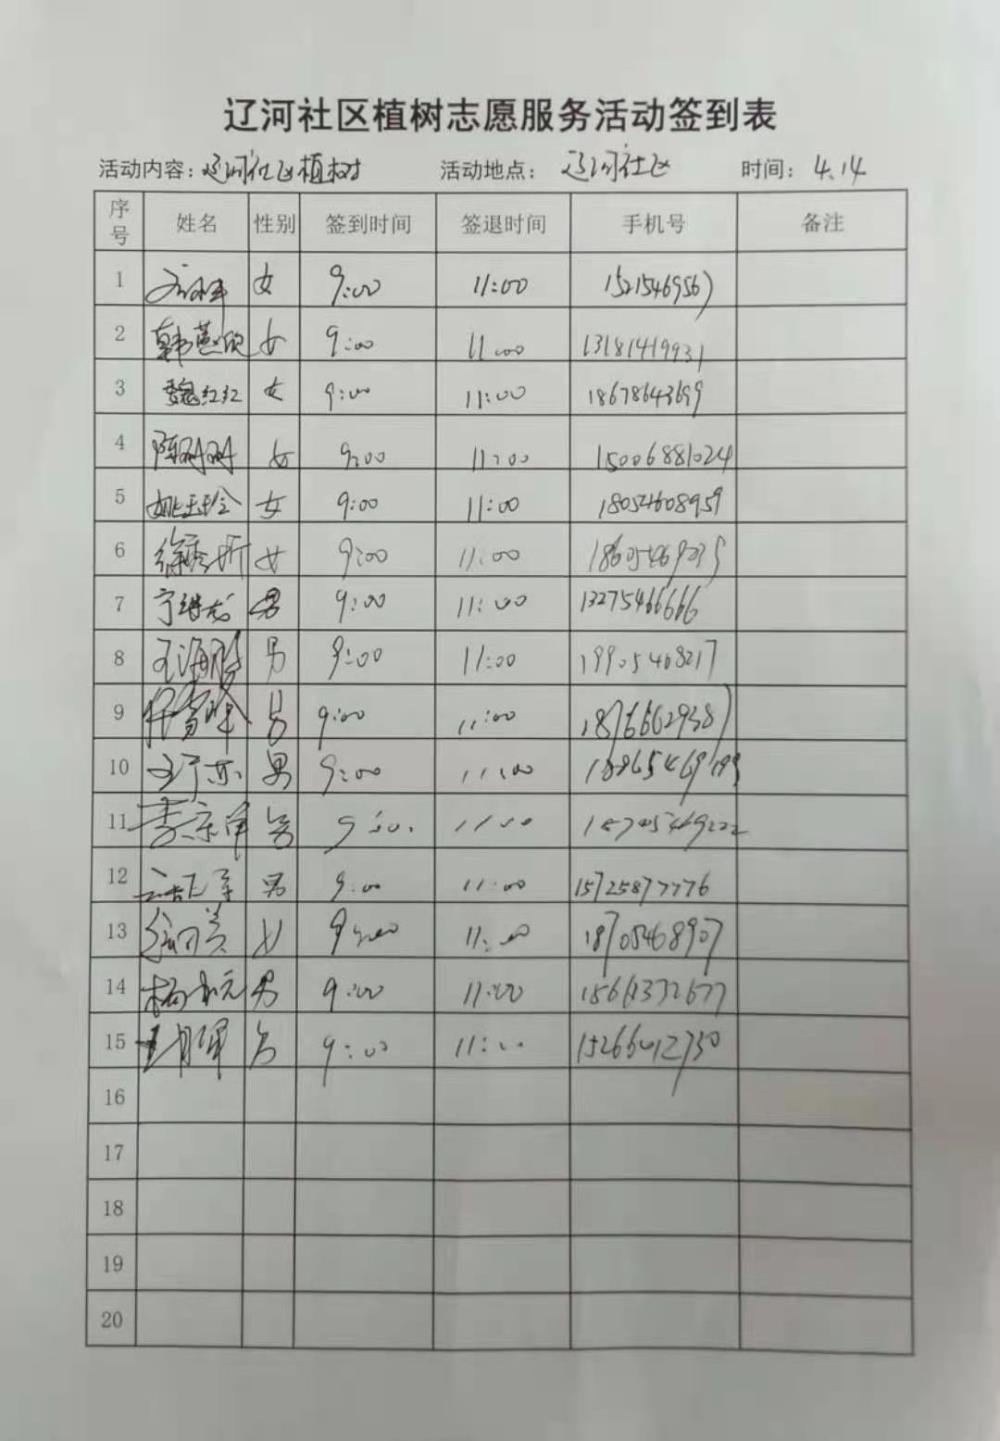 辽河社区植树志愿服务活动签到表
活动内容：辽河社区植树 活动地点：辽河社区 时间：4.14
序号 姓名 性别 签到时间 签退时间 手机号 备注
1 女 9:00 11:00 15215469567
2 韩燕欣 女 9:00 11:00 13181419931
3 魏红红 女 9:00 11:00 18678643699
4 陈树树 女 9:00 11:00 15006881024
5 姚玉玲 女 9:00 11:00 18054608959
6 女 9:00 11:00
7 宁继龙 男 9:00 11:00 13275466666
8 男 9:00 11:00 19905468217
9 男 9:00 11:00 18766629387
10 男 9:00 11:00
11 李京军 男 9:00 11:00 18705469222
12 男 9:00 11:00 15725877776
13 女 9:00 11:00 18705468907
14 男 9:00 11:00
15 男 9:00 11:00
16
17
18
19
20